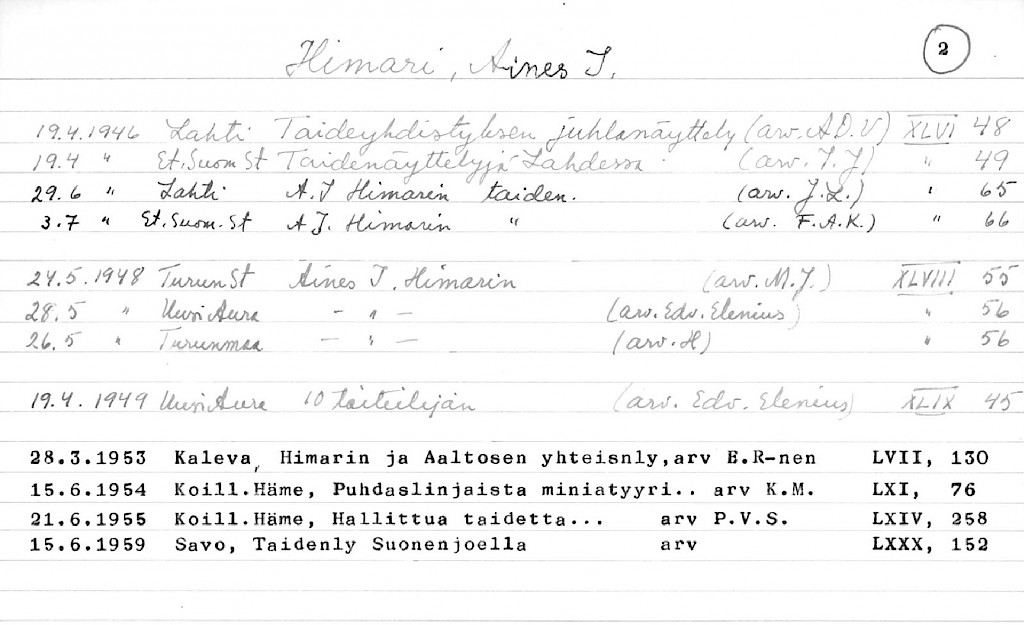 2
Himari, Aines I.
19.4.1946 Lahti Taideyhdistyksen juhlanäyttely (arv. A.D.V) XLVI 48
19.4 " Et. Suom St Taidenäyttelyjä Lahdessa (arv. I. J) " 49
29.6 " Lahti A.I Himarin taiden. (arv. J.L.) " 65
3.7 " Et. Suom. St A I. Himarin " (arv. F.A.K.) " 66
24.5.1948 Turun St Aines I. Himarin (arv. M.J.) XLVIII 55
28.5 " Uusi Aura – " – (arv. Edv. Elenius) " 56
26.5 " Turunmaa – " – (arv. H) " 56
19.4.1949 Uusi Aura 10 taiteilijan (arv. Edv. Elenius) XLIX 45
28.3.1953 Kaleva, Himarin ja Aaltosen yhteisnly,arv E.R-nen LVII, 130
15.6.1954 Koill.Häme, Puhdaslinjaista miniatyyri.. arv K.M. LXI, 76
21.6.1955 Koill.Häme, Hallittua taidetta... arv P.V.S. LXIV, 258
15.6.1959 Savo, Taidenly Suonenjoella arv LXXX, 152